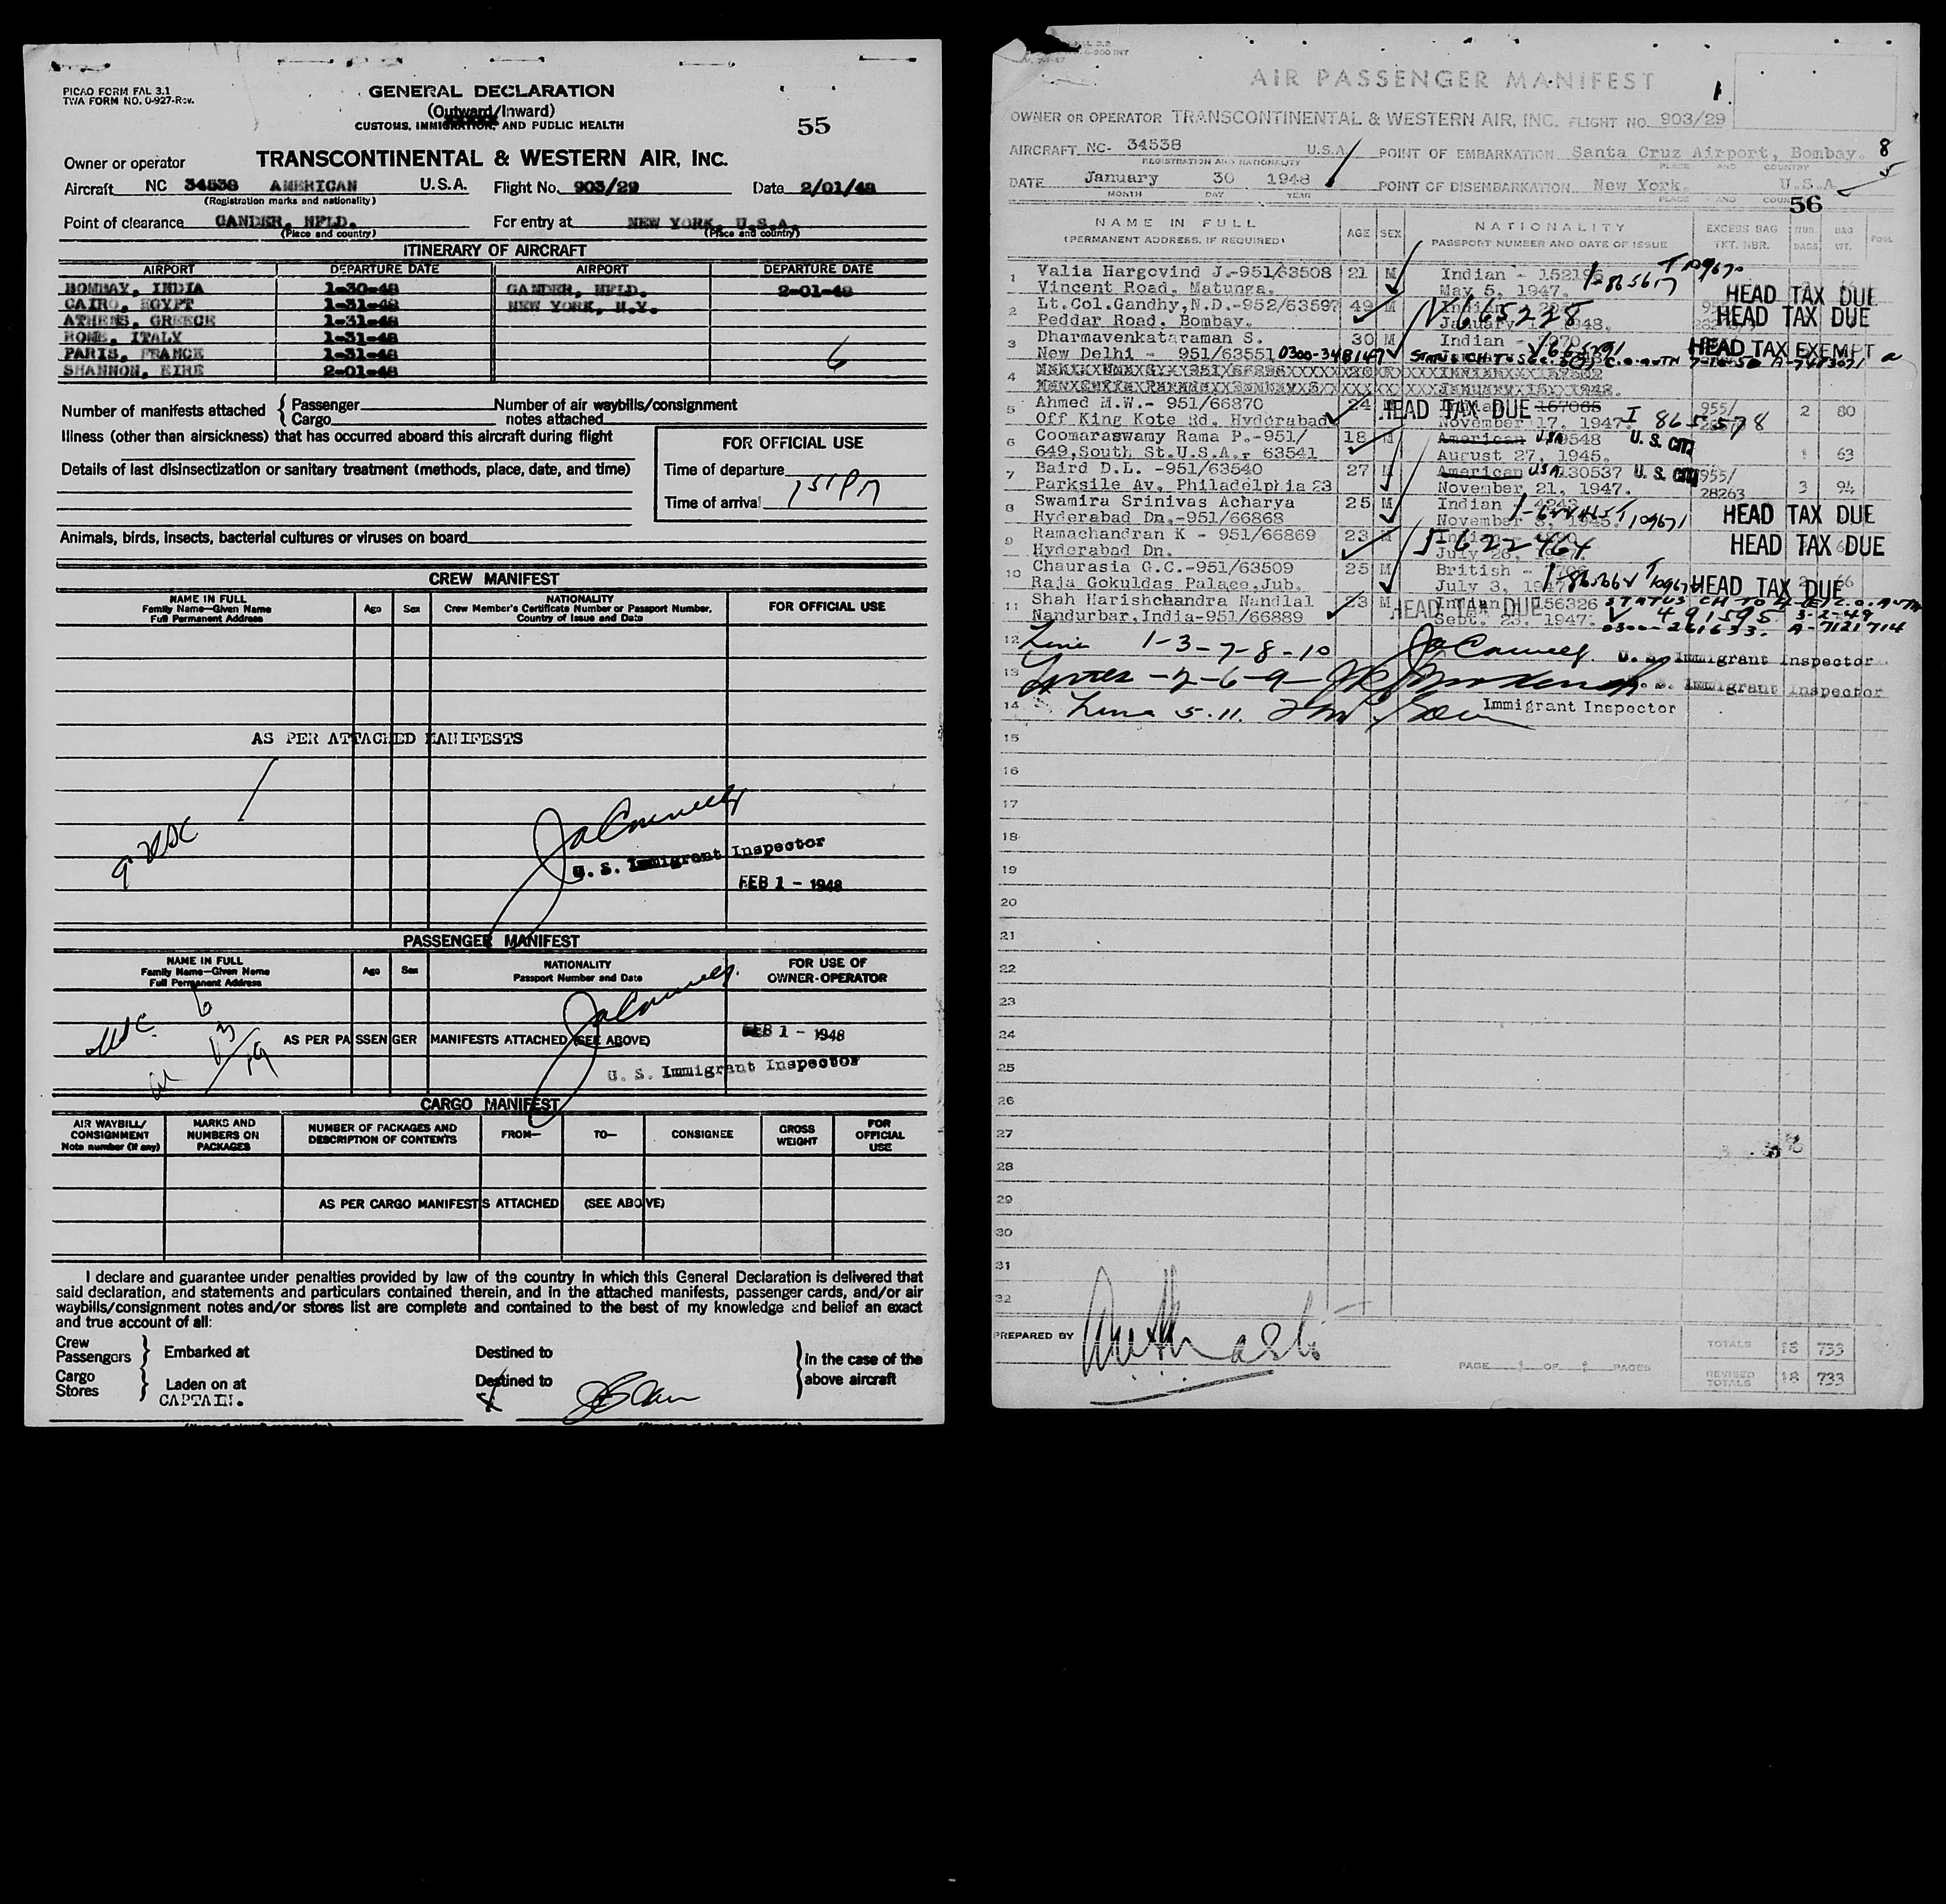 PICAO FORM FAL 3.1
TWA FORM NO. O-927-Rev.
GENERAL DECLARATION
(Outward/Inward)
CUSTOMS, IMMIGRATION, AND PUBLIC HEALTH
55
Owner or operator TRANSCONTINENTAL & WESTERN AIR, INC.
Aircraft NC 34538 AMERICAN U.S.A. Flight No. 903/29 Date 2/01/48
(Registration marks and nationality)
Point of clearance GANDER, NFLD. For entry at NEW YORK, U.S.A.
(Place and country) (Place and country)
ITINERARY OF AIRCRAFT
AIRPORT DEPARTURE DATE AIRPORT DEPARTURE DATE
BOMBAY, INDIA 1-30-48 GANDER, NFLD. 2-01-48
CAIRO, EGYPT 1-31-48 NEW YORK, N.Y.
ATHENS, GREECE 1-31-48
ROME, ITALY 1-31-48
PARIS, FRANCE 1-31-48 6
SHANNON, EIRE 2-01-48
Number of manifests attached { Passenger Number of air waybills/consignment
Cargo notes attached
Illness (other than airsickness) that has occurred aboard this aircraft during flight
FOR OFFICIAL USE
Details of last disinsectization or sanitary treatment (methods, place, date, and time)
Time of departure
Time of arrival 151PM
Animals, birds, insects, bacterial cultures or viruses on board
CREW MANIFEST
NAME IN FULL
Family Name—Given Name
Full Permanent Address
Age Sex
NATIONALITY
Crew Member's Certificate Number or Passport Number,
Country of Issue and Date
FOR OFFICIAL USE
AS PER ATTACHED MANIFESTS
U. S. Immigrant Inspector
FEB 1 - 1948
PASSENGER MANIFEST
NAME IN FULL
Family Name—Given Name
Full Permanent Address
Age Sex
NATIONALITY
Passport Number and Date
FOR USE OF
OWNER-OPERATOR
AS PER PASSENGER MANIFESTS ATTACHED (SEE ABOVE)
FEB 1 - 1948
U. S. Immigrant Inspector
CARGO MANIFEST
AIR WAYBILL/
CONSIGNMENT
Note number (if any)
MARKS AND
NUMBERS ON
PACKAGES
NUMBER OF PACKAGES AND
DESCRIPTION OF CONTENTS
FROM— TO— CONSIGNEE
GROSS
WEIGHT
FOR
OFFICIAL
USE
AS PER CARGO MANIFESTS ATTACHED (SEE ABOVE)
I declare and guarantee under penalties provided by law of the country in which this General Declaration is delivered that
said declaration, and statements and particulars contained therein, and in the attached manifests, passenger cards, and/or air
waybills/consignment notes and/or stores list are complete and contained to the best of my knowledge and belief an exact
and true account of all:
Crew
Passengers } Embarked at Destined to
Cargo
Stores } Laden on at Destined to
} In the case of the
above aircraft
CAPTAIN.
AIR PASSENGER MANIFEST
1.
OWNER OR OPERATOR TRANSCONTINENTAL & WESTERN AIR, INC. FLIGHT NO. 903/29
AIRCRAFT NC- 34538 U.S.A. POINT OF EMBARKATION Santa Cruz Airport, Bombay. 8
REGISTRATION AND NATIONALITY PLACE AND COUNTRY
DATE January 30 1948 POINT OF DISEMBARKATION New York. U.S.A.
MONTH DAY YEAR PLACE AND COUNTRY
56
NAME IN FULL
(PERMANENT ADDRESS, IF REQUIRED)
AGE SEX
NATIONALITY
PASSPORT NUMBER AND DATE OF ISSUE
EXCESS BAG
TKT. NBR.
NBR.
BAGS
BAG
WT.
POOL
1 Valia Hargovind J.-951/63508 21 M Indian - 152196
Vincent Road, Matunga. May 5, 1947. HEAD TAX DUE
2 Lt.Col.Gandhy,N.D.-952/63597 49 M V 665228 HEAD TAX DUE
Peddar Road, Bombay.
3 Dharmavenkataraman S. 30 M Indian -
New Delhi - 951/63551 0300-348147 HEAD TAX EXEMPT
4
5 Ahmed M.W.- 951/66870 24 M HEAD TAX DUE 167065 955/ 2 80
Off King Kote Rd, Hyderabad November 17, 1947. I 865578
6 Coomaraswamy Rama P.-951/ 18 M American USA 9548 U. S. CIT.
649,South St.U.S.A.r 63541 August 27, 1945. 63
7 Baird D.L. -951/63540 27 M American USA 130537 U. S. CIT. 955/
Parksile Av, Philadelphia 23 November 21, 1947. 28263 3 94
8 Swamira Srinivas Acharya 25 M Indian
Hyderabad Dn.-951/66868 HEAD TAX DUE
9 Ramachandran K - 951/66869 23 M I-622464
Hyderabad Dn. July 26, HEAD TAX DUE
10 Chaurasia G.C.-951/63509 25 M British -
Raja Gokuldas Palace,Jub. July 3, 1947 HEAD TAX DUE
11 Shah Harishchandra Nandlal 23 M HEAD TAX DUE Indian 156326
Nandurbar,India-951/66889 Sept. 23, 1947. V 491595 3-2-49
0300-261633. A-7121714
12 Line 1-3-7-8-10 U. S. Immigrant Inspector
13 -2-6-9- U. S. Immigrant Inspector
14 Line 5.11. Immigrant Inspector
15
16
17
18
19
20
21
22
23
24
25
26
27
28
29
30
31
32
PREPARED BY
PAGE 1 OF 1 PAGES
TOTALS 18 733
REVISED
TOTALS 18 733